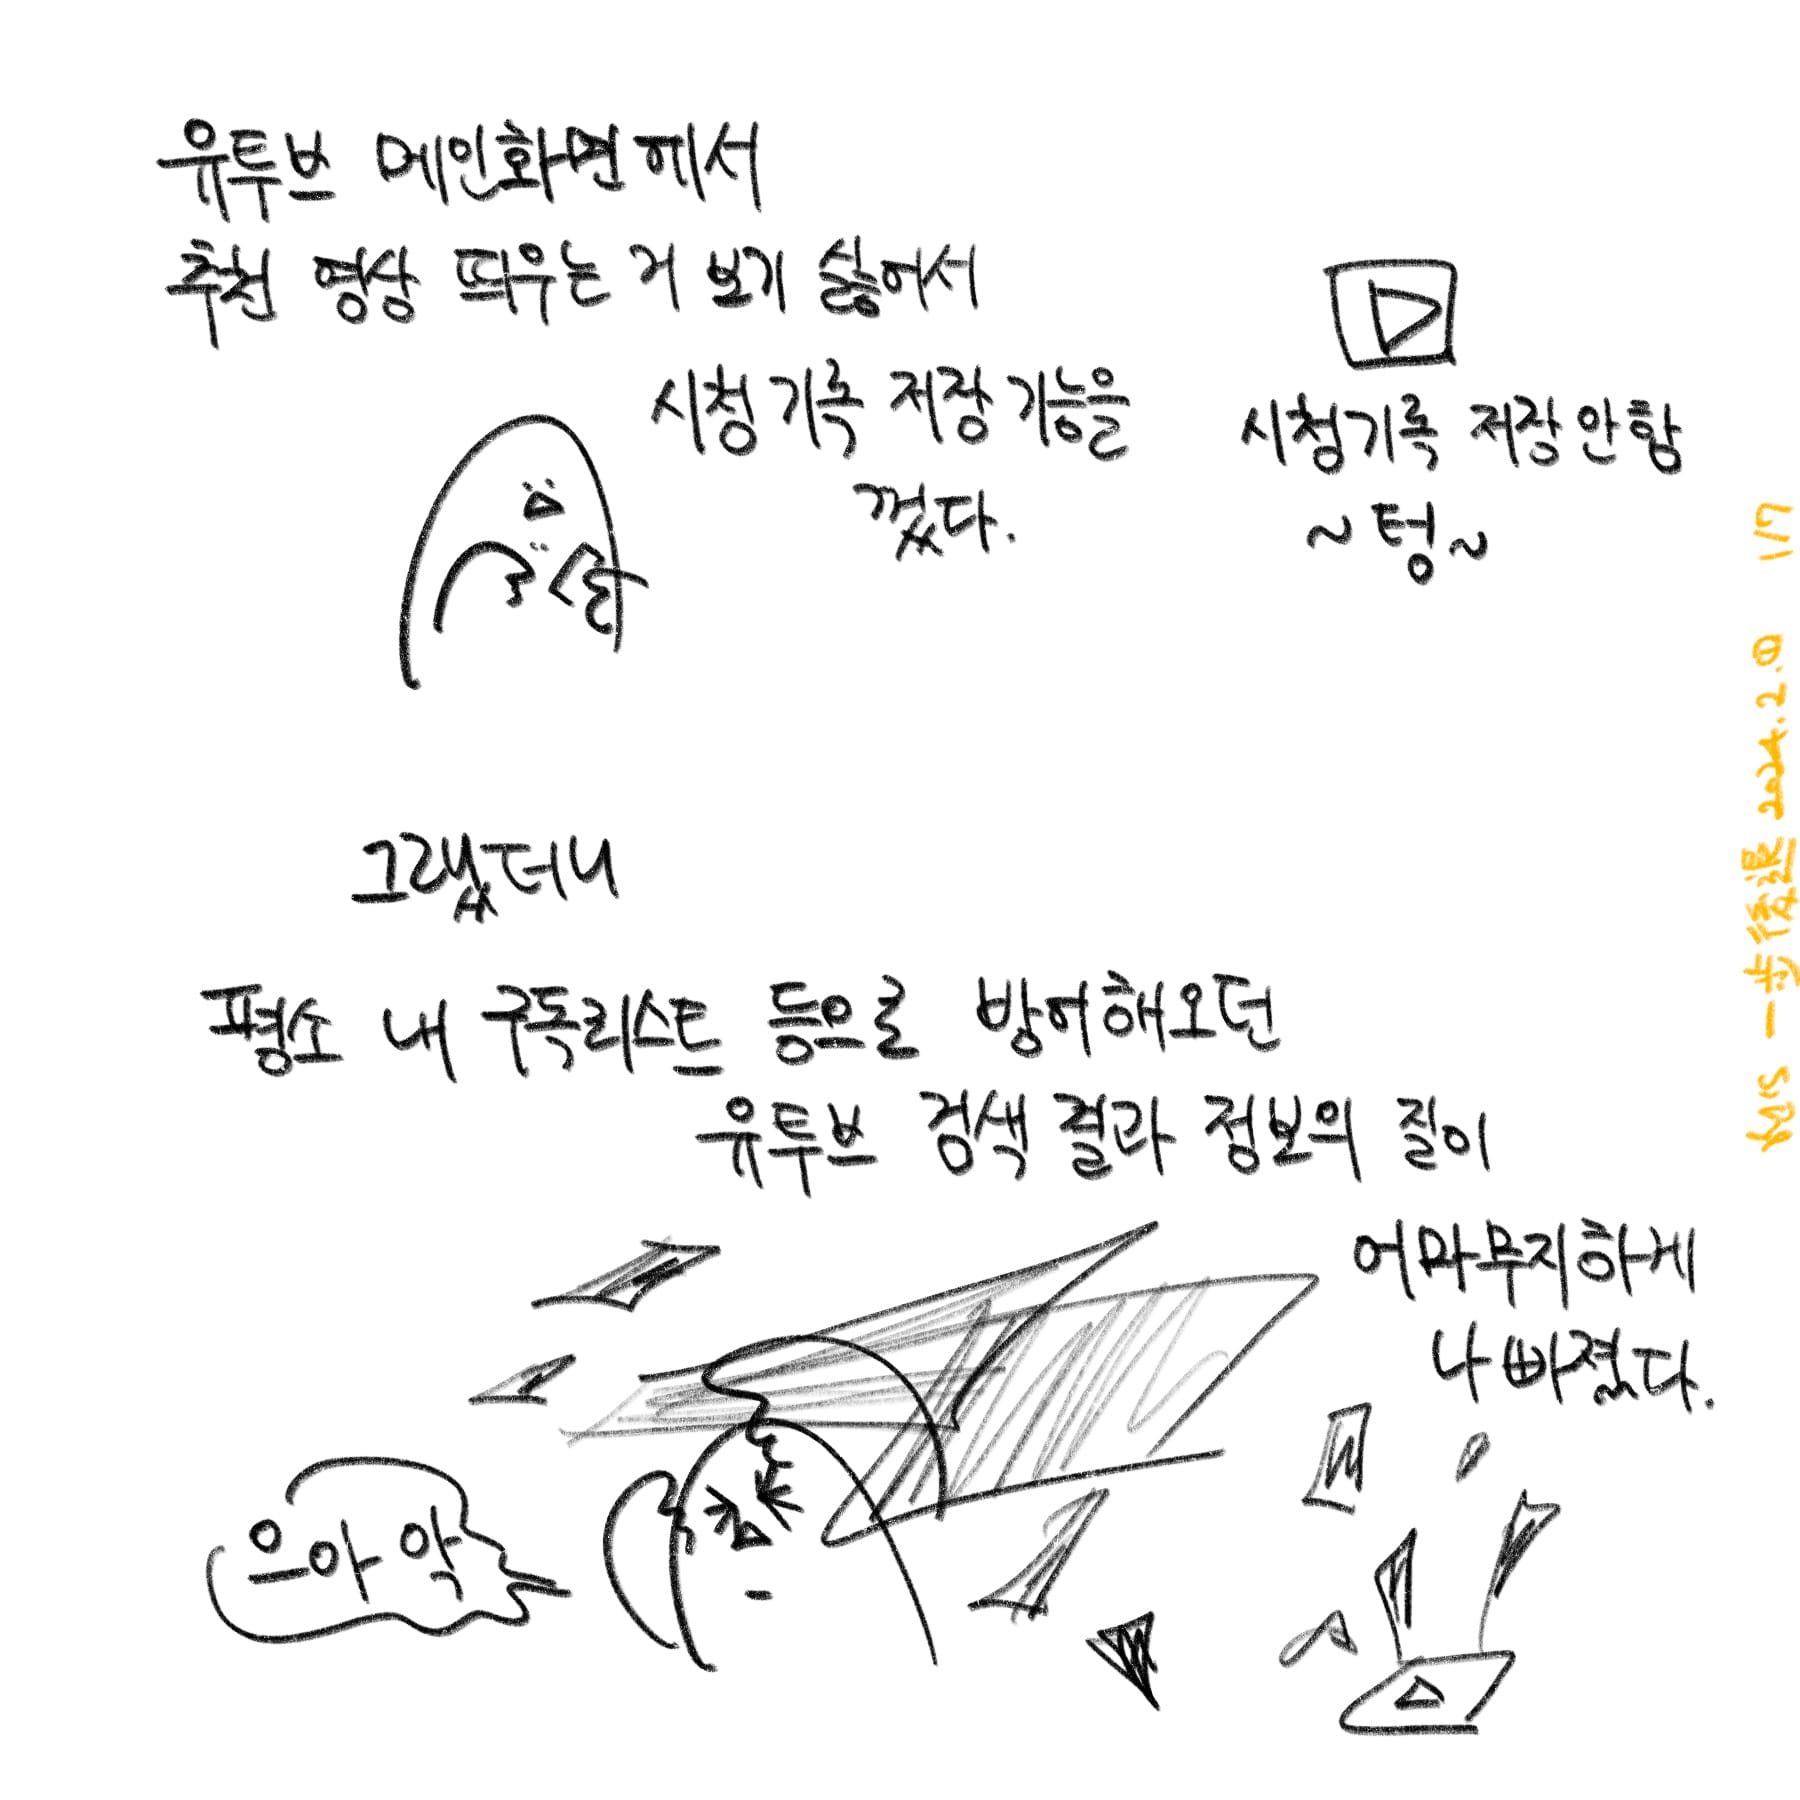 유투브 메인화면에서
추천 영상 띄우는 거 보기 싫어서
시청기록 저장 기능을
껐다.
시청기록 저장 안함
~텅~
그랬더니
평소 내 구독리스트 등으로 방어해오던
유투브 검색 결과 정보의 질이
어마무지하게
나빠졌다.
으아악
2024.2.
1/7